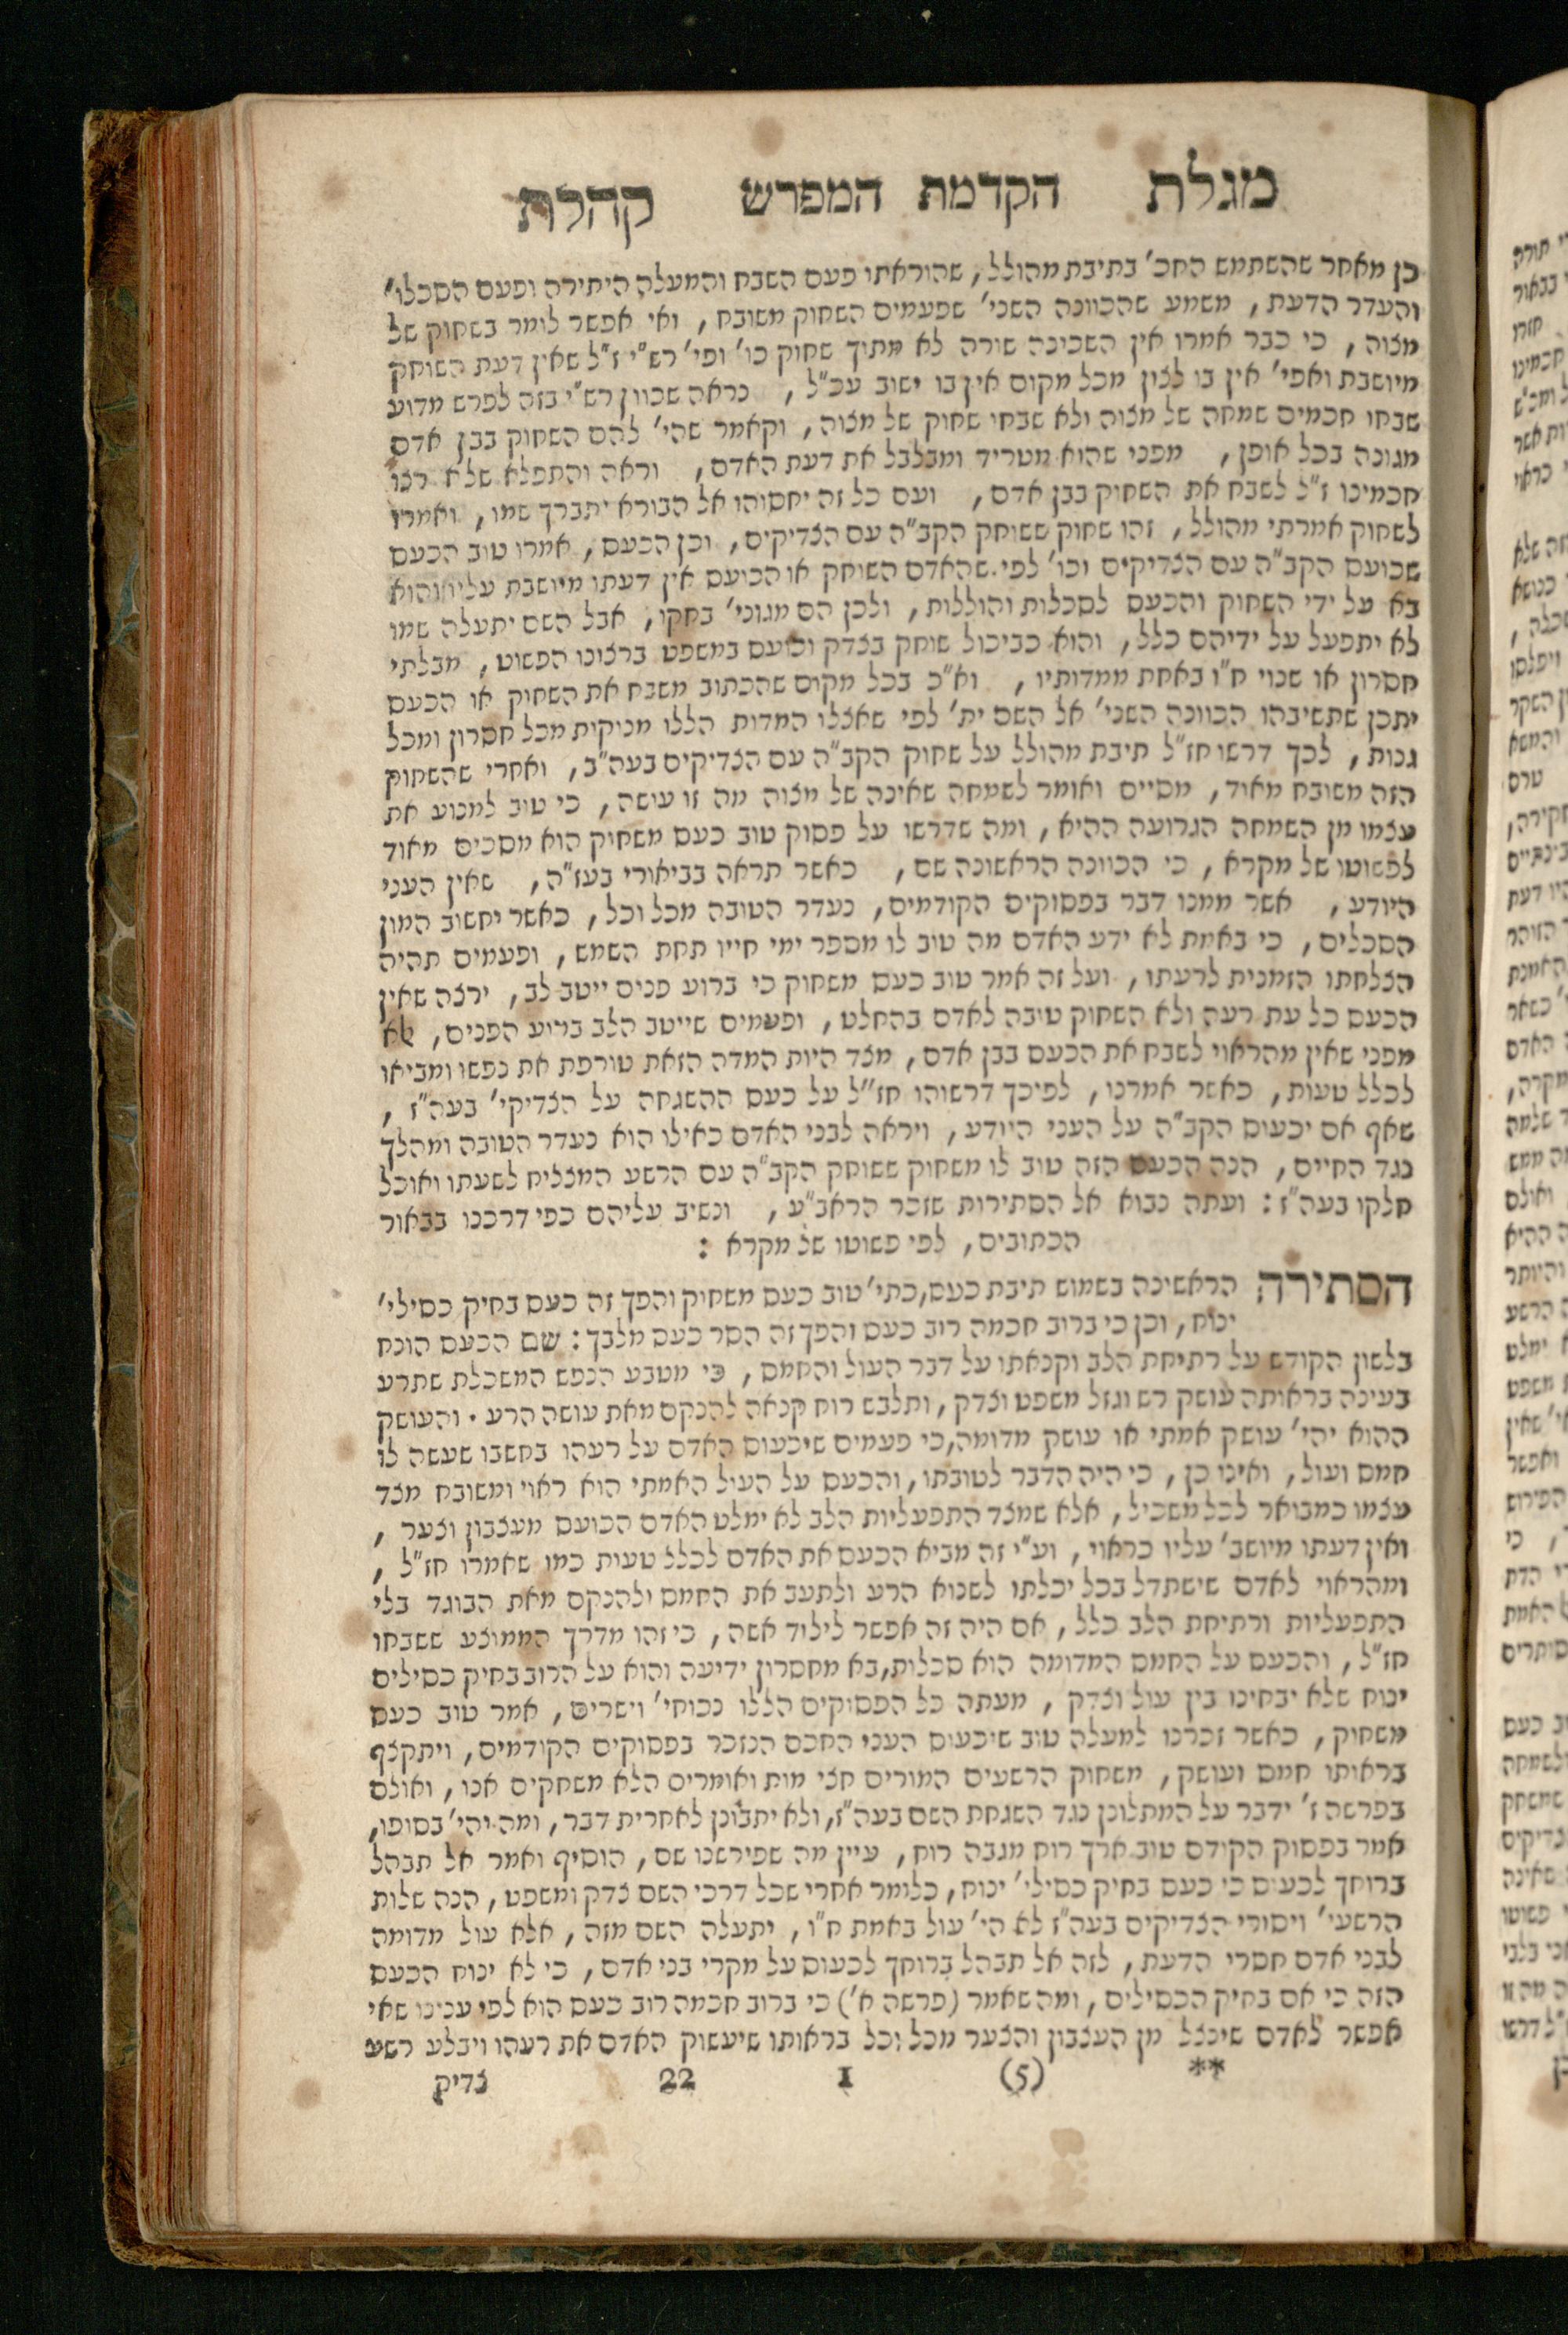 מגלת הקדמת המפרש קהלת
כן מאחר שהשתמש החכ' בתיבת מהולל, שהוראתו פעם השבח והמעלה היתירה ופעם הסכלו'
והעדר הדעת, משמע שהכוונה השני' שפעמים השחוק משובח, ואי אפשר לומר בשחוק של
מצוה, כי כבר אמרו אין השכינה שורה לא מתוך שחוק כו' ופי' רש"י ז"ל שאין דעת השוחק
מיושבת ואפי' אין בו לצון מכל מקום אין בו ישוב עכ"ל, נראה שכוון רש"י בזה לפרש מדוע
שבחו חכמים שמחה של מצוה ולא שבחו שחוק של מצוה, וקאמר שהי' להם השחוק בבן אדם
מגונה בכל אופן, מפני שהוא מטריד ומבלבל את דעת האדם, וראה והתפלא שלא רצו
חכמינו ז"ל לשבח את השחוק בבן אדם, ועם כל זה יחסוהו אל הבורא יתברך שמו, ואמרו
לשחוק אמרתי מהולל, זהו שחוק ששוחק הקב"ה עם הצדיקים, וכן הכעס, אמרו טוב הכעס
שכועס הקב"ה עם הצדיקים וכו' לפי שהאדם השוחק או הכועס אין דעתו מיושבת עליו והוא
בא על ידי השחוק והכעס לסכלות והוללות, ולכן הם מגוני' בחקו, אבל השם יתעלה שמו
לא יתפעל על ידיהם כלל, והוא כביכול שוחק בצדק וכועס במשפט ברצונו הפשוט, מבלתי
חסרון או שנוי ח"ו באחת ממדותיו, וא"כ בכל מקום שהכתוב משבח את השחוק או הכעס
יתכן שתשיבהו הכוונה השני' אל השם ית' לפי שאצלו המדות הללו מנוקות מכל חסרון ומכל
גנות, לכך דרשו חז"ל תיבת מהולל על שחוק הקב"ה עם הצדיקים בעה"ב, ואחרי שהשחוק
הזה משובח מאוד, מסיים ואומר לשמחה שאינה של מצוה מה זו עושה, כי טוב למנוע את
עצמו מן השמחה הגרועה ההיא, ומה שדרשו על פסוק טוב כעס משחוק הוא מסכים מאוד
לפשוטו של מקרא, כי הכוונה הראשונה שם, כאשר תראה בביאורי בעז"ה, שאין העני
היודע, אשר ממנו דבר בפסוקים הקודמים, נעדר הטובה מכל וכל, כאשר יחשוב המון
הסכלים, כי באמת לא ידע האדם מה טוב לו מספר ימי חייו תחת השמש, ופעמים תהיה
הצלחתו הזמנית לרעתו, ועל זה אמר טוב כעס משחוק כי ברוע פנים ייטב לב, ירצה שאין
הכעס כל עת רעה ולא השחוק טובה לאדם בהחלט, ופעמים שייטב הלב ברוע הפנים,
מפני שאין מהראוי לשבח את הכעס בבן אדם, מצד היות המדה הזאת טורפת את נפשו ומביאו
לכלל טעות, כאשר אמרנו, לפיכך דרשוהו חז"ל על כעס ההשגחה על הצדיקי' בעה"ז,
שאף אם יכעוס הקב"ה על העני היודע, ויראה לבני האדם כאילו הוא נעדר הטובה ומהלך
נגד החיים, הנה הכעס הזה טוב לו משחוק ששוחק הקב"ה עם הרשע המצליח לשעתו ואוכל
חלקו בעה"ז: ועתה נבוא אל הסתירות שזכר הראב"ע, ונשיב עליהם כפי דרכנו בבאור
הכתובים, לפי פשוטו של מקרא:
הסתירה הראשונה בשמוש תיבת כעס, כתי' טוב כעס משחוק והפך זה כעס בחיק כסילי'
ינוח, וכן כי ברוב חכמה רוב כעס והפך זה הסר כעס מלבך: שם הכעס הונח
בלשון הקודש על רתיחת הלב וקנאתו על דבר העול והחמס, כי מטבע הנפש המשכלת שתרע
בעינה בראותה עושק רש וגזל משפט וצדק, ותלבש רוח קנאה להנקם מאת עושה הרע. והעושק
ההוא יהי' עושק אמתי או עושק מדומה, כי פעמים שיכעוס האדם על רעהו בחשבו שעשה לו
חמס ועול, ואינו כן, כי היה הדבר לטובתו, והכעס על העול האמתי הוא ראוי ומשובח מצד
עצמו כמבואר לכל משכיל, אלא שמצד התפעליות הלב לא ימלט האדם הכועס מעצבון וצער,
ואין דעתו מיושב' עליו כראוי, וע"י זה מביא הכעס את האדם לכלל טעות כמו שאמרו חז"ל,
ומהראוי לאדם שישתדל בכל יכלתו לשנוא הרע ולתעב את החמס ולהנקם מאת הבוגד בלי
התפעליות ורתיחת הלב כלל, אם היה זה אפשר לילוד אשה, כי זהו מדרך הממוצע ששבחו
חז"ל, והכעס על החמס המדומה הוא סכלות, בא מחסרון ידיעה והוא על הרוב בחיק כסילים
ינוח שלא יבחינו בין עול וצדק, מעתה כל הפסוקים הללו נכוחי' וישרים, אמר טוב כעס
משחוק, כאשר זכרנו למעלה טוב שיכעוס העני החכם הנזכר בפסוקים הקודמים, ויתקצף
בראותו חמס ועושק, משחוק הרשעים המורים חצי מות ואומרים הלא משחקים אנו, ואולם
בפרשה ז' ידבר על המתלונן נגד השגחת השם בעה"ז, ולא יתבונן לאחרית דבר, ומה יהי' בסופו,
אמר בפסוק הקודם טוב ארך רוח מגבה רוח, עיין מה שפירשנו שם, הוסיף ואמר אל תבהל
ברוחך לכעוס כי כעס בחיק כסילי' ינוח, כלומר אחרי שכל דרכי השם צדק ומשפט, הנה שלות
הרשעי' ויסורי הצדיקים בעה"ז לא הי' עול באמת ח"ו, יתעלה השם מזה, אלא עול מדומה
לבני אדם חסרי הדעת, לזה אל תבהל ברוחך לכעוס על מקרי בני אדם, כי לא ינוח הכעס
הזה כי אם בחיק הכסילים, ומה שאמר (פרשה א') כי ברוב חכמה רוב כעס הוא לפי ענינו שאי
אפשר לאדם שינצל מן העצבון והצער מכל וכל בראותו שיעשוק האדם את רעהו ויבלע רשע
** (5) 1 22 צדיק